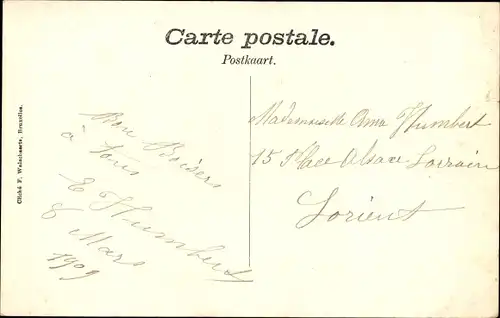 Carte postale.
Postkaart.
Cliché F. Walschaerts, Bruxelles.
Bon Baisers
à tous
E Humbert
8 Mars
1909
Mademoiselle Anna Humbert
15 Place Alsace Lorraine
Lorient